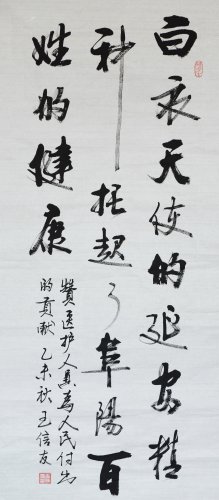 白衣天使的延安精
神托起了阜陽百
姓的健康
贊医护人員為人民付出
的貢献乙未秋王信友